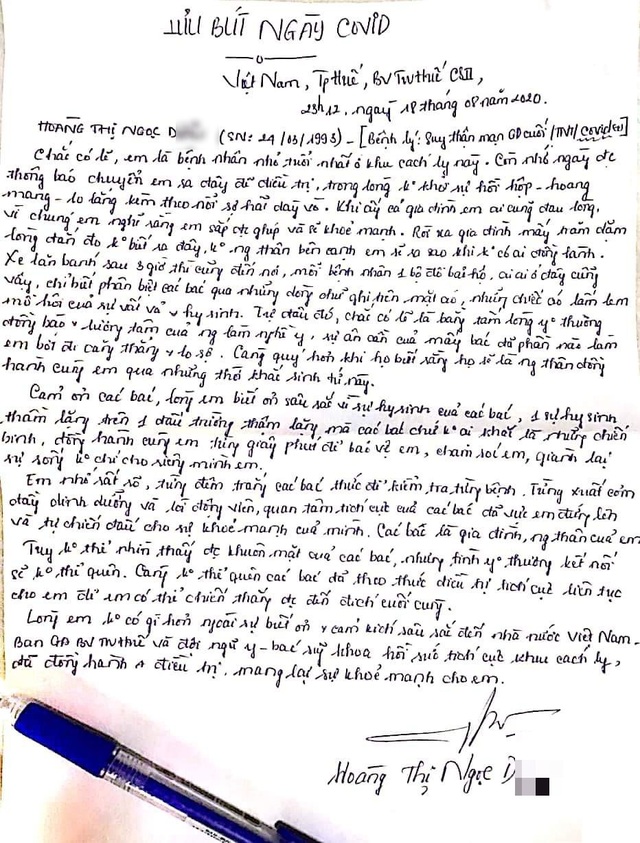 LƯU BÚT NGÀY COVID
Việt Nam, Tp Huế, BV TW Huế CSII,
23h12, ngày 18 tháng 08 năm 2020.
HOÀNG THỊ NGỌC D (SN: 24/03/1993) - [Bệnh lý: Suy thận mạn GĐ cuối/THA/Covid(+)]
Chắc có lẽ, em là bệnh nhân nhỏ tuổi nhất ở khu cách ly này. Còn nhớ ngày đc
thông báo chuyển em ra đây để điều trị, trong lòng k° khỏi sự hồi hộp - hoang
mang - lo lắng kèm theo nỗi sợ hãi dày vò. Khi ấy cả gia đình em ai cũng đau lòng,
vì chúng em nghĩ rằng em sắp đc ghép và sẽ khoẻ mạnh. Rời xa gia đình mấy trăm dặm
lòng đắn đo k° biết ra đây, k° ng thân bên cạnh em sẽ ra sao khi k° có ai đồng hành.
Xe lăn bánh sau 3 giờ thì cũng đến nơi, mỗi bệnh nhân 1 bộ đồ bảo hộ, ai ai ở đây cũng
vậy, chỉ biết phân biệt các bác qua những dòng chữ ghi trên mặt áo, những chiếc áo lấm lem
mồ hôi của sự vất vả + hy sinh. Từ đâu đó, chắc có lẽ là bằng tấm lòng yê thương
đồng bào + lương tâm của ng làm nghề y, sự ân cần của mấy bác đã phần nào làm
em bớt đi căng thẳng + lo sợ. Càng quý hơn khi họ biết rằng họ sẽ là ng thân đồng
hành cùng em qua những thời khắc sinh tử này.
Cảm ơn các bác, lòng em biết ơn sâu sắc vì sự hy sinh của các bác, 1 sự hy sinh
thầm lặng trên 1 đấu trường thầm lặng mà các bác chứ k° ai khác là những chiến
binh, đồng hành cùng em từng giây phút để bảo vệ em, chăm sóc em, giành lại
sự sống k° chỉ cho riêng mình em.
Em nhớ rất rõ, từng đêm trắng các bác thức để kiểm tra từng bệnh. Từng xuất cơm
đầy dinh dưỡng và lời động viên, quan tâm tích cực của các bác đã vực em đứng lên
và tự chiến đấu cho sự khoẻ mạnh của mình. Các bác là gia đình, ng thân của em
Tuy k° thể nhìn thấy đc khuôn mặt của các bác, nhưng tình yê thương kết nối
sẽ k° thể quên. Càng k° thể quên các bác đã theo thức điều trị tích cực liên tục
cho em để em có thể chiến thắng đc đến đích cuối cùng.
Lòng em k° có gì hơn ngoài sự biết ơn + cảm kích sâu sắc đến nhà nước Việt Nam -
Ban GĐ BV TW Huế và đội ngũ y - bác sỹ khoa hồi sức tích cực khu cách ly,
đã đồng hành + điều trị, mang lại sự khoẻ mạnh cho em.
Hoàng Thị Ngọc D